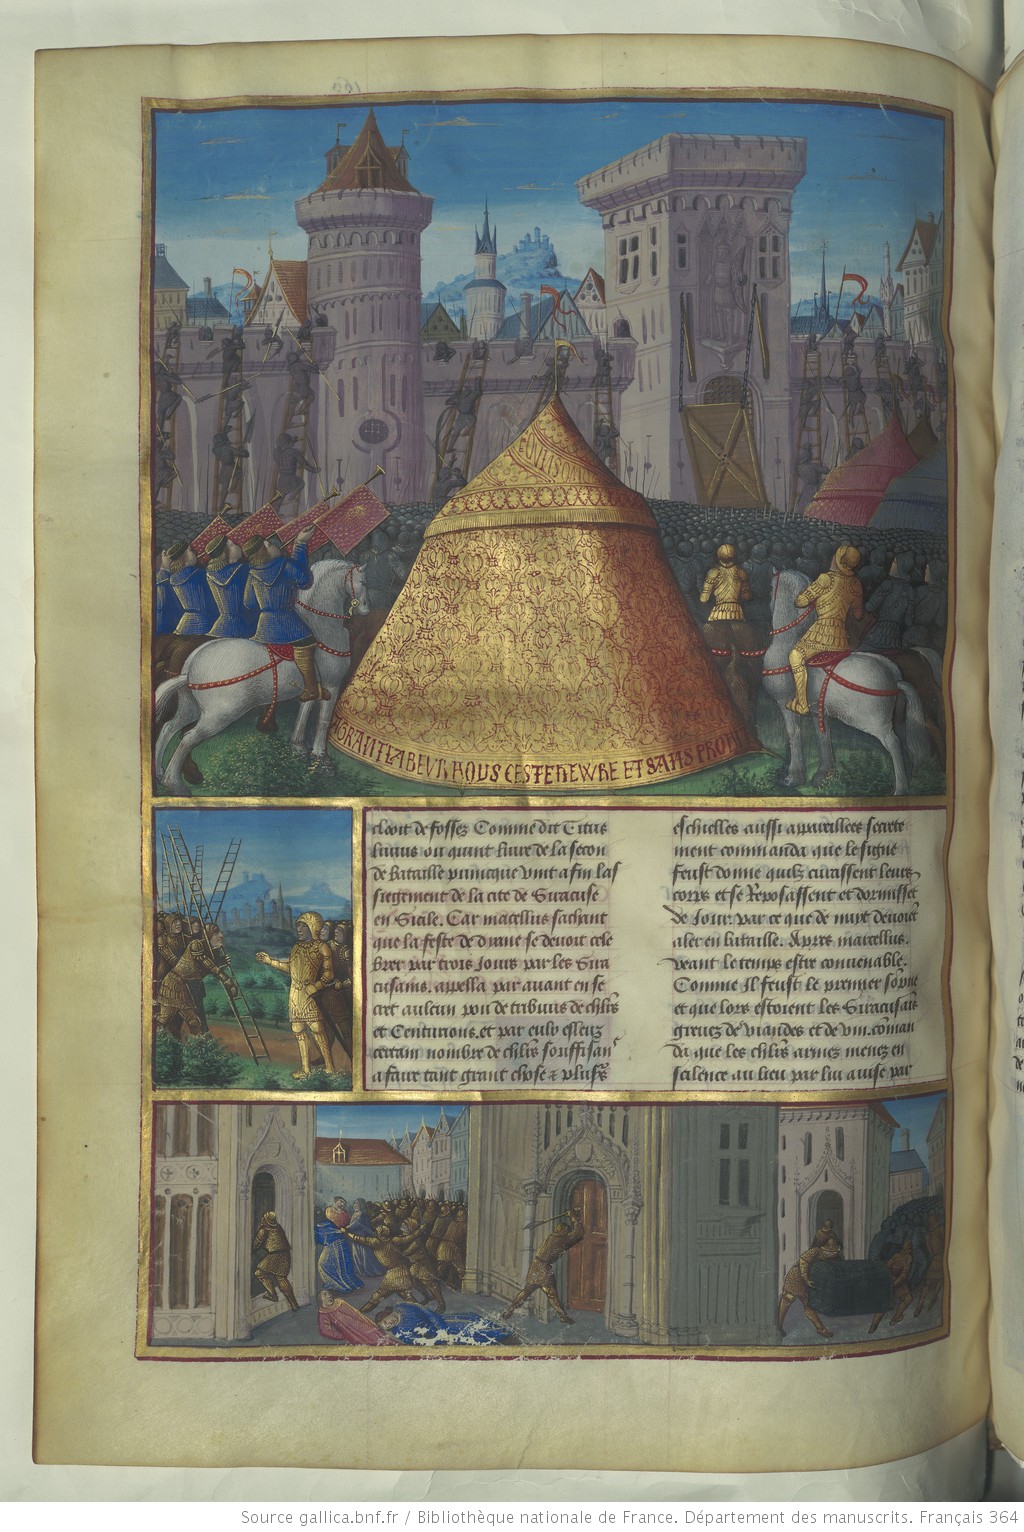 EQVLISOV
A GRANT LABEVR NOUS CESTE HEWRE ET SANS PROFIT
clooit de fossez Comme dit Titus
liuius ou quint liure de la secon
de Bataille punicque vint a fin las
siegement de la cite de Siracuse
en Sicile. Car marcellus sachant
que la feste de dyane se deuoit cele
brer par trois Iours par les Sira
cusains. appella par auant en se
cret aulcun pou de tribuns de chlrs
et Centurions. et par eulx esleuz
certain nombre de chlrs souffisans
a faire tant grant chose & plusrs
eschielles aussi appareillees secrete
ment commanda que le signe
feust donne quilz curassent leurs
corps et se Reposassent et dormissent
de Iour. par ce que de nuyt deuoient
aler en bataille. Apres marcellus.
veant le temps estre conuenable.
Comme Il feust le premier sompne
et que lors estoient les Siracusains
greuez de viandes et de vin. coman
da que les chlrs armez menez en
scilence au lieu par lui auise par
Source gallica.bnf.fr / Bibliothèque nationale de France. Département des manuscrits. Français 364